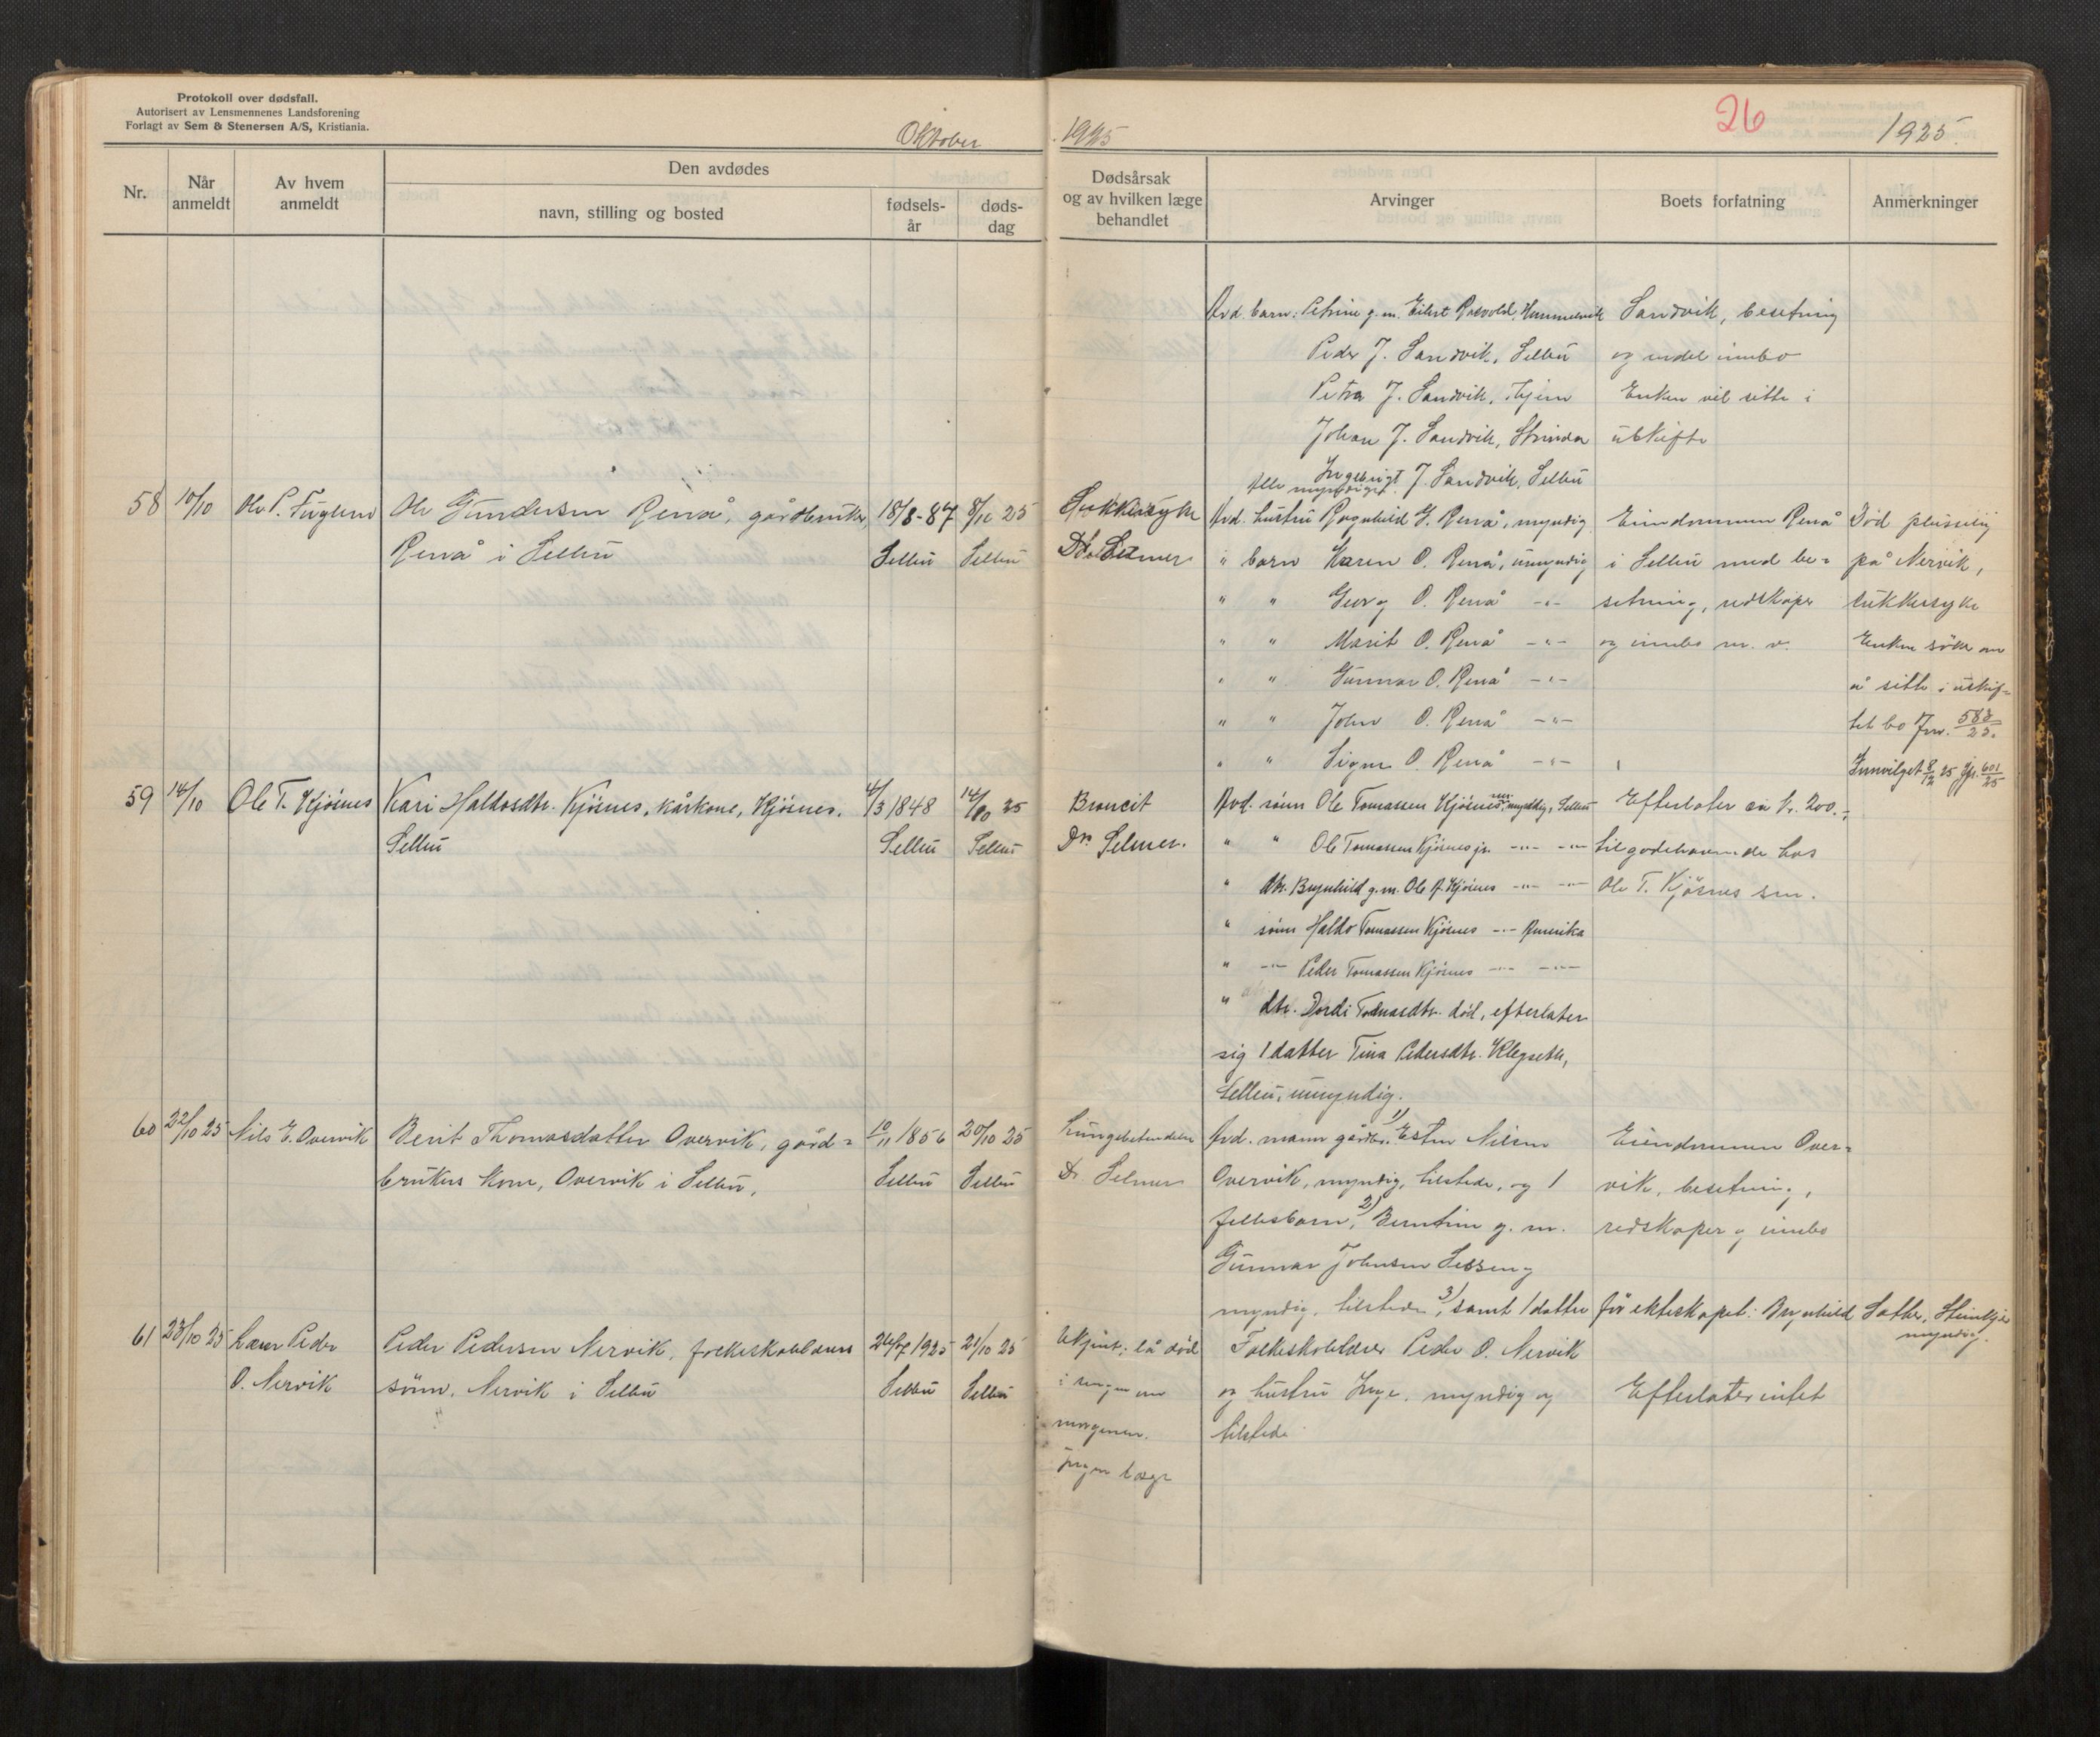 Protokoll over dødsfall.
Autorisert av Lensmennenes Landsforening
Forlagt av Sem & Stenersen A/S, Kristiania.
Oktober 1925
26
1925.
Nr.
Når anmeldt
Av hvem anmeldt
Den avdødes
navn, stilling og bosted
fødsels-år
døds-dag
Dødsårsak og av hvilken læge behandlet
Arvinger
Boets forfatning
Anmerkninger
Avd. barn: Petrine g. m. Eilert Hommelvik Sandvik, besetning
Peder J. Sandvik, Selbu og endel innbo
Petra J. Sandvik, hjem Enken vil sitte i
Johan J. Sandvik, Strinda uskifte
Ingebrigt J. Sandvik, Selbu
Alle myndige.
58 10/10 Ole P. Fuglem Ole Gundersen Renå, gårdbruker, 18/8-87 8/10 25 Sukkersyke Avd. hustru Ragnhild G. Renå, myndig Eiendommen Renå Død plusselig
Renå i Selbu Selbu Selbu Dr. Selmer " barn Karen O. Renå, umyndig i Selbu med be- på Nervik,
" " Georg O. Renå -"- setning, redskaper sukkersyke
" " Marit O. Renå -"- og innbo m. v. Enken søker om
" " Gunnar O. Renå -"- å sitte i uskif-
" " John O. Renå -"- tet bo Jnr. 583/25.
" " Signe O. Renå -"- Innvilget 8/12 25 Jr. 601/25
59 14/10 Ole T. Kjøsnes Kari Haldosdtr. Kjøsnes, kårkone, Kjøsnes. 4/3 1848 14/10 25 Broncit Avd. sønn Ole Tomassen Kjøsnes sen. myndig, Selbu Efterlater ca kr. 200.-
Selbu Selbu Selbu Dr. Selmer. " " Ole Tomassen Kjøsnes jr. -"- -"- tilgodehavende hos
" dtr. Brynhild g. m. Ole A. Kjøsnes -"- -"- Ole T. Kjøsnes sen.
" sønn Haldo Tomassen Kjøsnes -"- Amerika
" -"- Peder Tomassen Kjøsnes -"- -"-
" dtr. Dordi Tomasdtr. død, efterlater
sig 1 datter Tina Pedersdtr. Klegseth,
Selbu, umyndig.
60 22/10 25 Nils E. Overvik Berit Thomasdatter Overvik, gård- 10/11 1856 20/10 25 Lungebetendelse Avd. mann gårdbr. 1) Esten Nilsen Eiendommen Over-
brukers kone, Overvik i Selbu, Selbu Selbu Dr. Selmer Overvik, myndig, tilstede, og 1 vik, besetning,
fellesbarn, 2) Berntine g. m. redskaper og innbo
Gunnar Johnsen
myndig, tilstede, 3) samt 1 datter før ekteskapet: Brynhild Sætter, Steinkjer
myndig.
61 23/10 25 Lærer Peder Peder Pedersen Nervik, folkeskolelærers 24/7 1925 21/10 25 Ukjent; lå død Folkeskolelærer Peder O. Nervik
O. Nervik sønn, Nervik i Selbu Selbu Selbu i sengen om og hustru Inga, myndig og Efterlater intet
morgenen. tilstede
Ingen læge